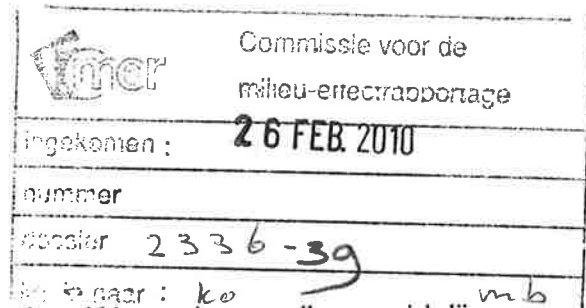 mer
Commissie voor de
milieu-effectrapportage
ingekomen :
26 FEB. 2010
nummer
dossier 2336-39
naar : ko mb